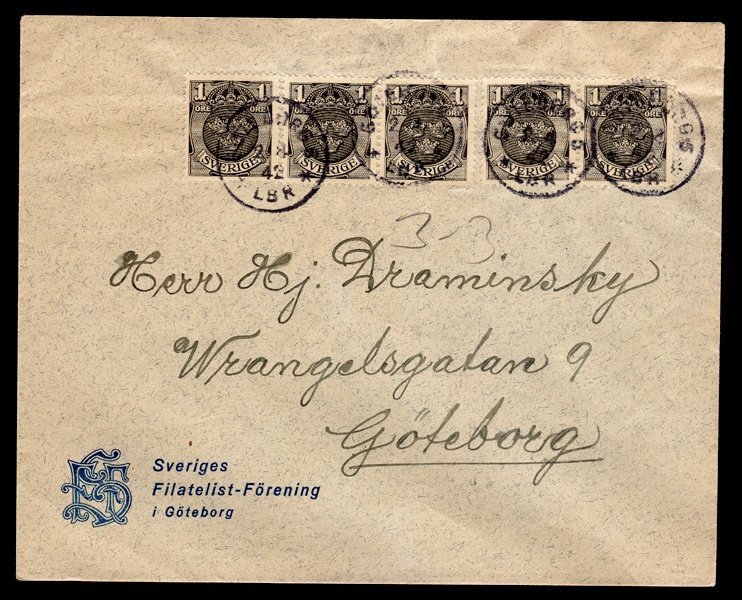 1 1 1 1 1 1 1 1 1 1
ÖRE ÖRE ÖRE ÖRE
SVERIGE SVERIGE SVERIGE SVERIGE SVERIGE
42
LBR LBR LBR
3-3
Herr Hj. Draminsky
Wrangelsgatan 9
Göteborg
SFF
Sveriges
Filatelist-Förening
i Göteborg